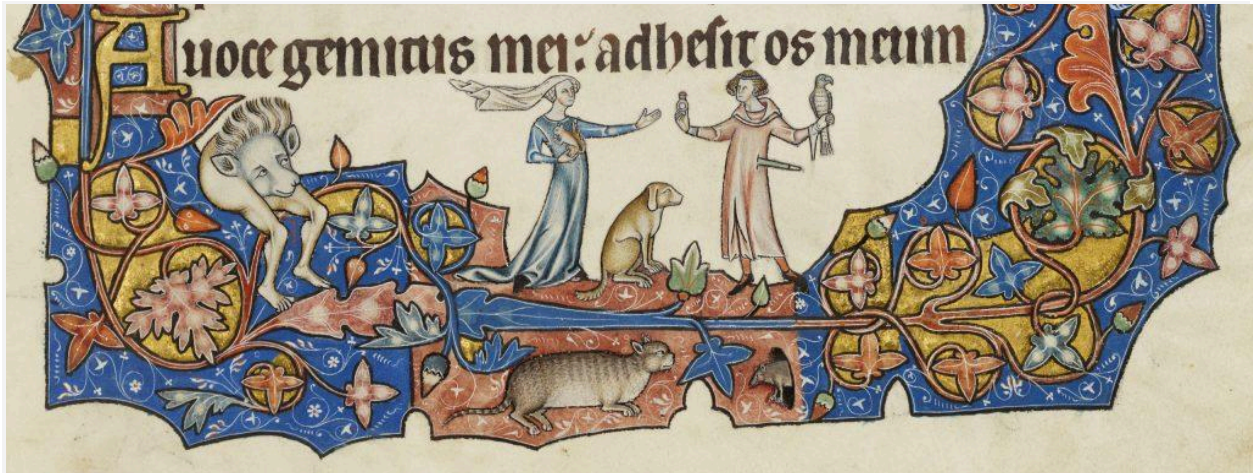 A uoce gemitus mei: adhesit os meum